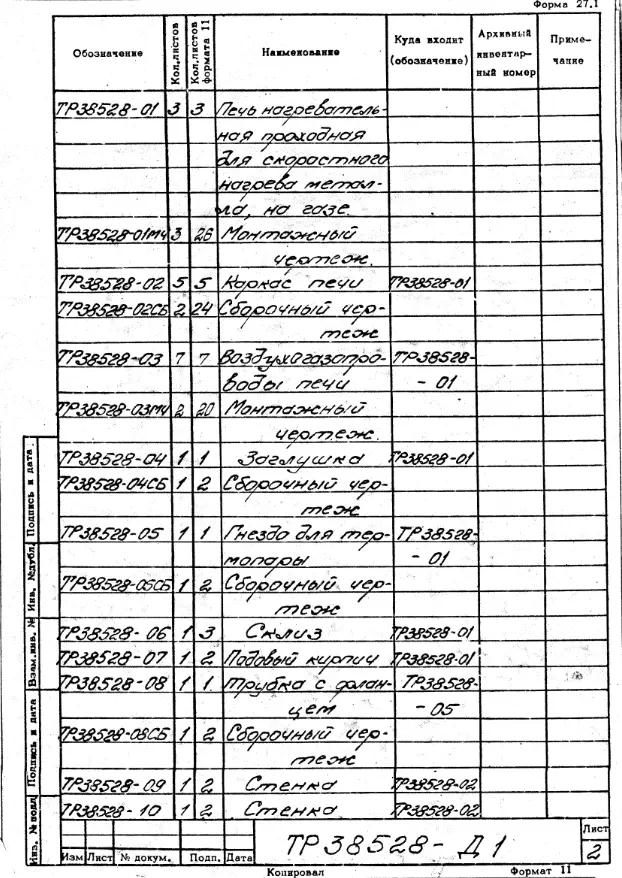 Форма 27.1
Обозначение Кол.листов Кол.листов формата 11 Наименование Куда входит (обозначение) Архивный инвентарный номер Примечание
ТР38528-01 3 3 Печь нагреватель-
ная проходная
для скоростного
нагрева метал-
ла, на газе.
ТР38528-01МЧ 3 26 Монтажный
чертеж.
ТР38528-02 5 5 Каркас печи ТР38528-01
ТР38528-02СБ 2 24 Сборочный чер-
теж
ТР38528-03 7 7 Воздухогазопро- ТР38528-
воды печи - 01
ТР38528-03МЧ 2 20 Монтажный
чертеж.
ТР38528-04 1 1 Заглушка ТР38528-01
ТР38528-04СБ 1 2 Сборочный чер-
теж
ТР38528-05 1 1 Гнездо для тер- ТР38528-
мопары - 01
ТР38528-05СБ 1 2 Сборочный чер-
теж
ТР38528-06 1 3 Склиз ТР38528-01
ТР38528-07 1 2 Подовый кирпич ТР38528-01
ТР38528-08 1 1 Трубка с флан- ТР38528-
цем - 05
ТР38528-08СБ 1 2 Сборочный чер-
теж
ТР38528-09 1 2 Стенка ТР38528-02
ТР38528-10 1 2 Стенка ТР38528-02
Подпись и дата
Инв. №дубл.
Взам.инв. №
Подпись и дата
Инв. №подл.
ТР38528- Д1
Лист
2
Изм Лист № докум. Подп. Дата
Копировал Формат 11